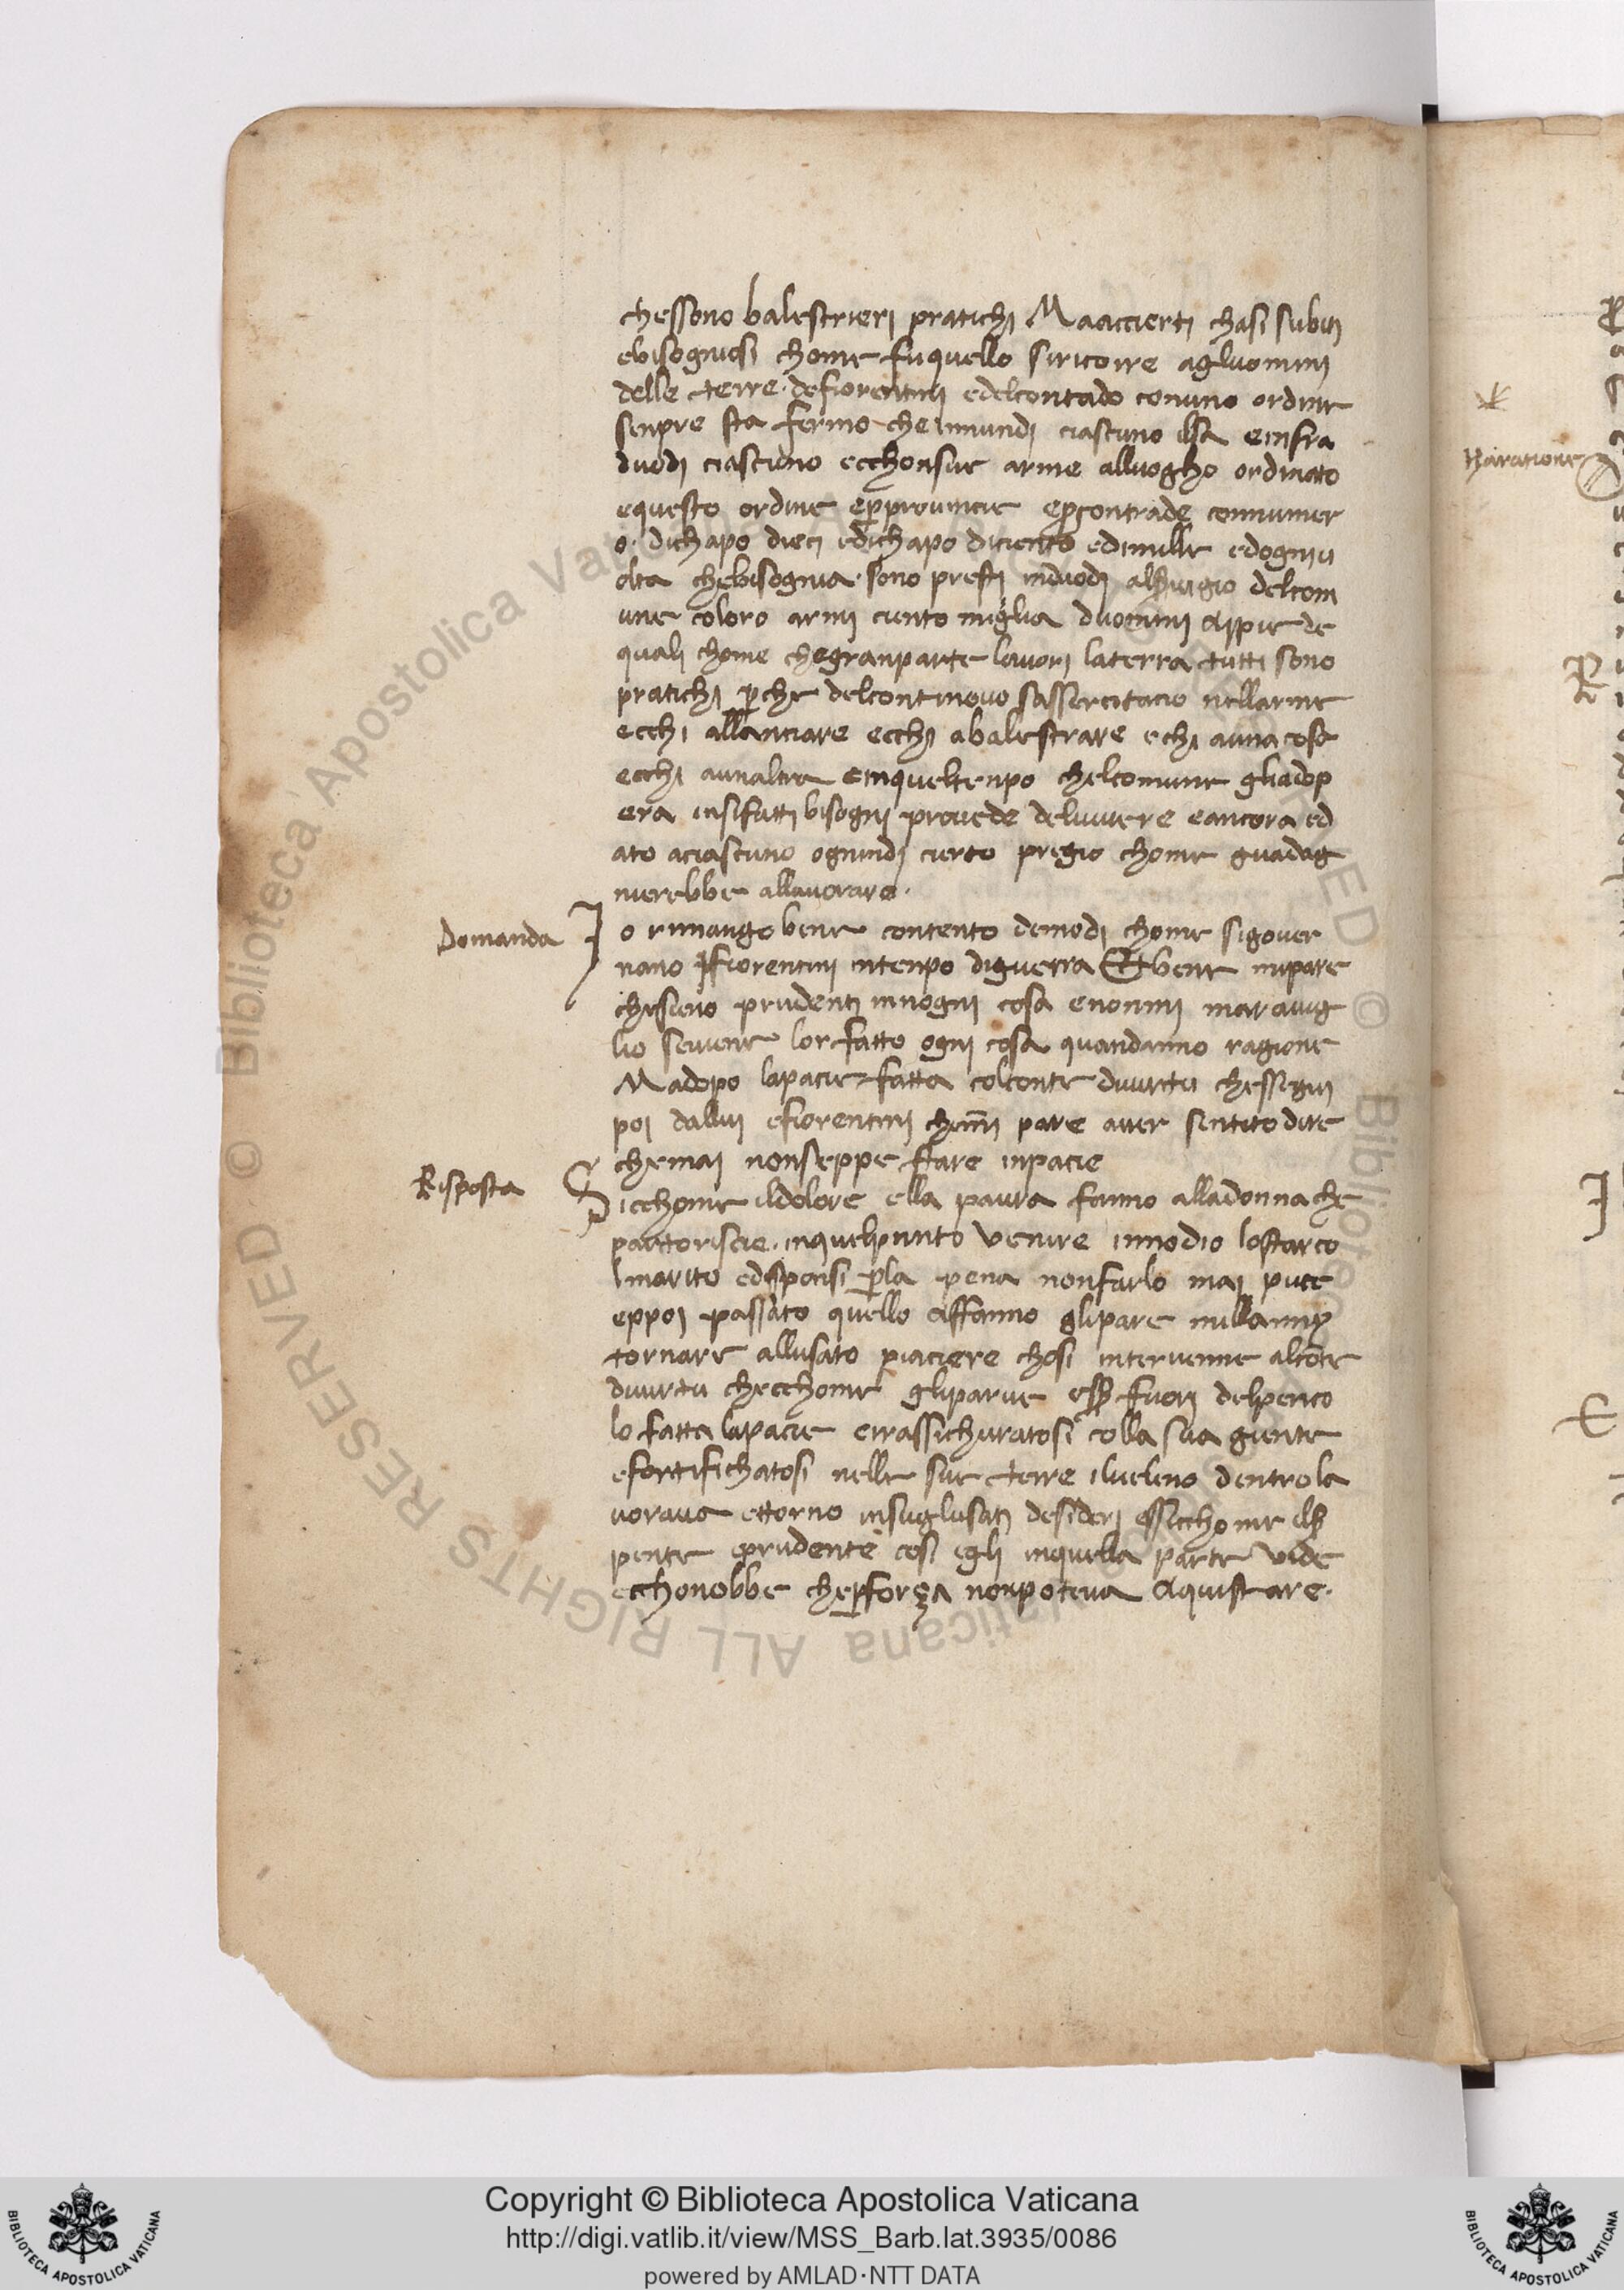 chessono balestrieri pratichi Maaccierti chasi subiti
ebisogniosi chome fuquello siricorre agluomini
delle terre defiorentini edelcontado conuno ordine
senpre sta fermo che inundi ciascuno ilsa einfra
duodi ciascuno ecchonsue arme alluogho ordinato
equesto ordine epprovincie epcontrade connumer
o dichapo dieci edichapo diciento edimille edogniv
olta chebisognia sono presti induodi alservigio delcom
une coloro armi ciento miglia duomini appie de
quali chome chegranparte lavori laterra tutti sono
pratichi pche delcontinovo sassercitacio nellarme
ecchi allanciare ecchi abalestrare echi auna cosa
ecchi aunaltra einqueltenpo chelcomune gliadop
era insifatti bisogni provede delvivere eancora ed
ato aciascuno ognindi cierto pregio chome guadag
nierebbe allavorare.
Domanda
Io rimango bene contento demodi chome sigover
nano ifiorentini intenpo diguerra Et bene mipare
chesieno prudenti innogni cosa enonmi maravig
lio seviene lor fatto ogni cosa quandanno ragione
Madopo lapacie fatta colconte divirtu chessegui
poi dallui efiorentini chemi pare aver sentito dire
chemai nonseppe stare inpacie
Risposta
Sicchome ildolore ella paura fanno alladonna che
parttoriscie inquelpunto venire innodio lostarco
lmarito edisponsi pla pena nonfarlo mai piue
eppoi passato quello affanno glipare millanni
tornare allusato piaciere chosi intervenne alcote
divirtu checchome gliparve ess fuori delperico
lo fatta lapacie errassichuratosi colla sua giente
efortifichatosi nelle sue terre ilveleno dentro la
vorava ettorno insuglusati desideri essicchome ils
pente eprudente cosi egli inquella parte vide
ecchonobbe chepforza nonpoteva aquistare.
Naratione
Copyright © Biblioteca Apostolica Vaticana
http://digi.vatlib.it/view/MSS_Barb.lat.3935/0086
powered by AMLAD·NTT DATA